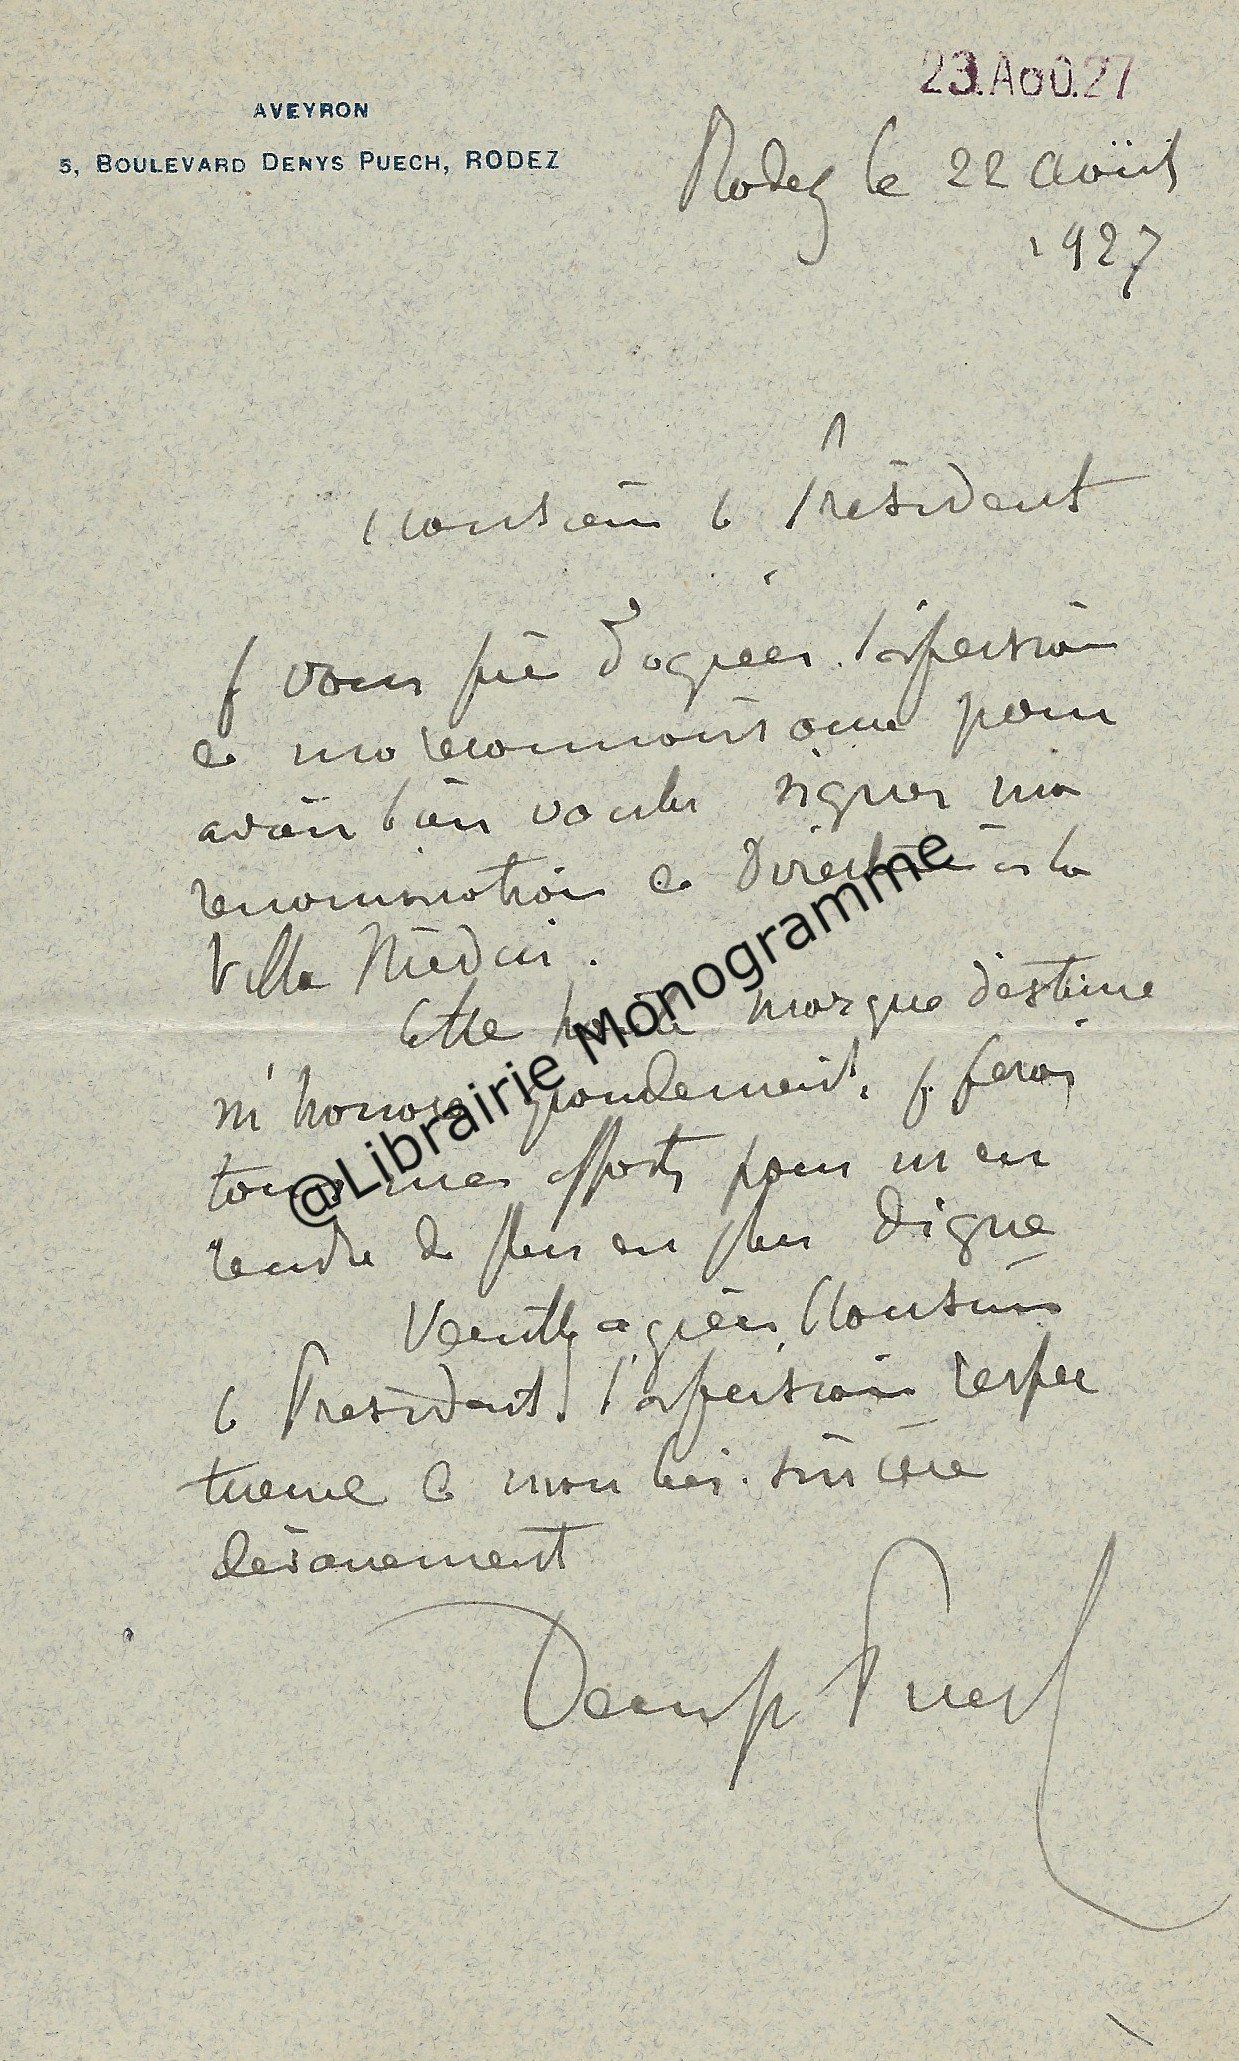 23. AOÛ. 27
AVEYRON
5, BOULEVARD DENYS PUECH, RODEZ
Rodez le 22 Août
1927
Monsieur le Président
Je vous prie d'agréer l'expression
de ma reconnaissance pour
avoir bien voulu signer ma
renomination de Directeur à la
Villa Médicis.
Cette haute marque d'estime
m'honore grandement. Je ferai
tous mes efforts pour m'en
rendre de plus en plus digne
Veuillez agréer, Monsieur
le Président, l'expression respec
tueuse de mon bien sincère
dévouement
Denys Puech
@Librairie Monogramme